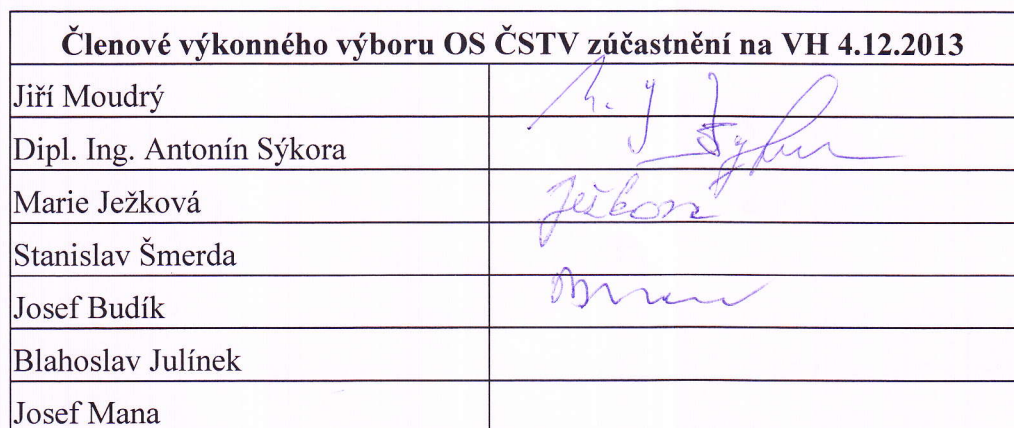 Členové výkonného výboru OS ČSTV zúčastnění na VH 4.12.2013
Jiří Moudrý
Dipl. Ing. Antonín Sýkora
Marie Ježková Ježková
Stanislav Šmerda
Josef Budík
Blahoslav Julínek
Josef Mana